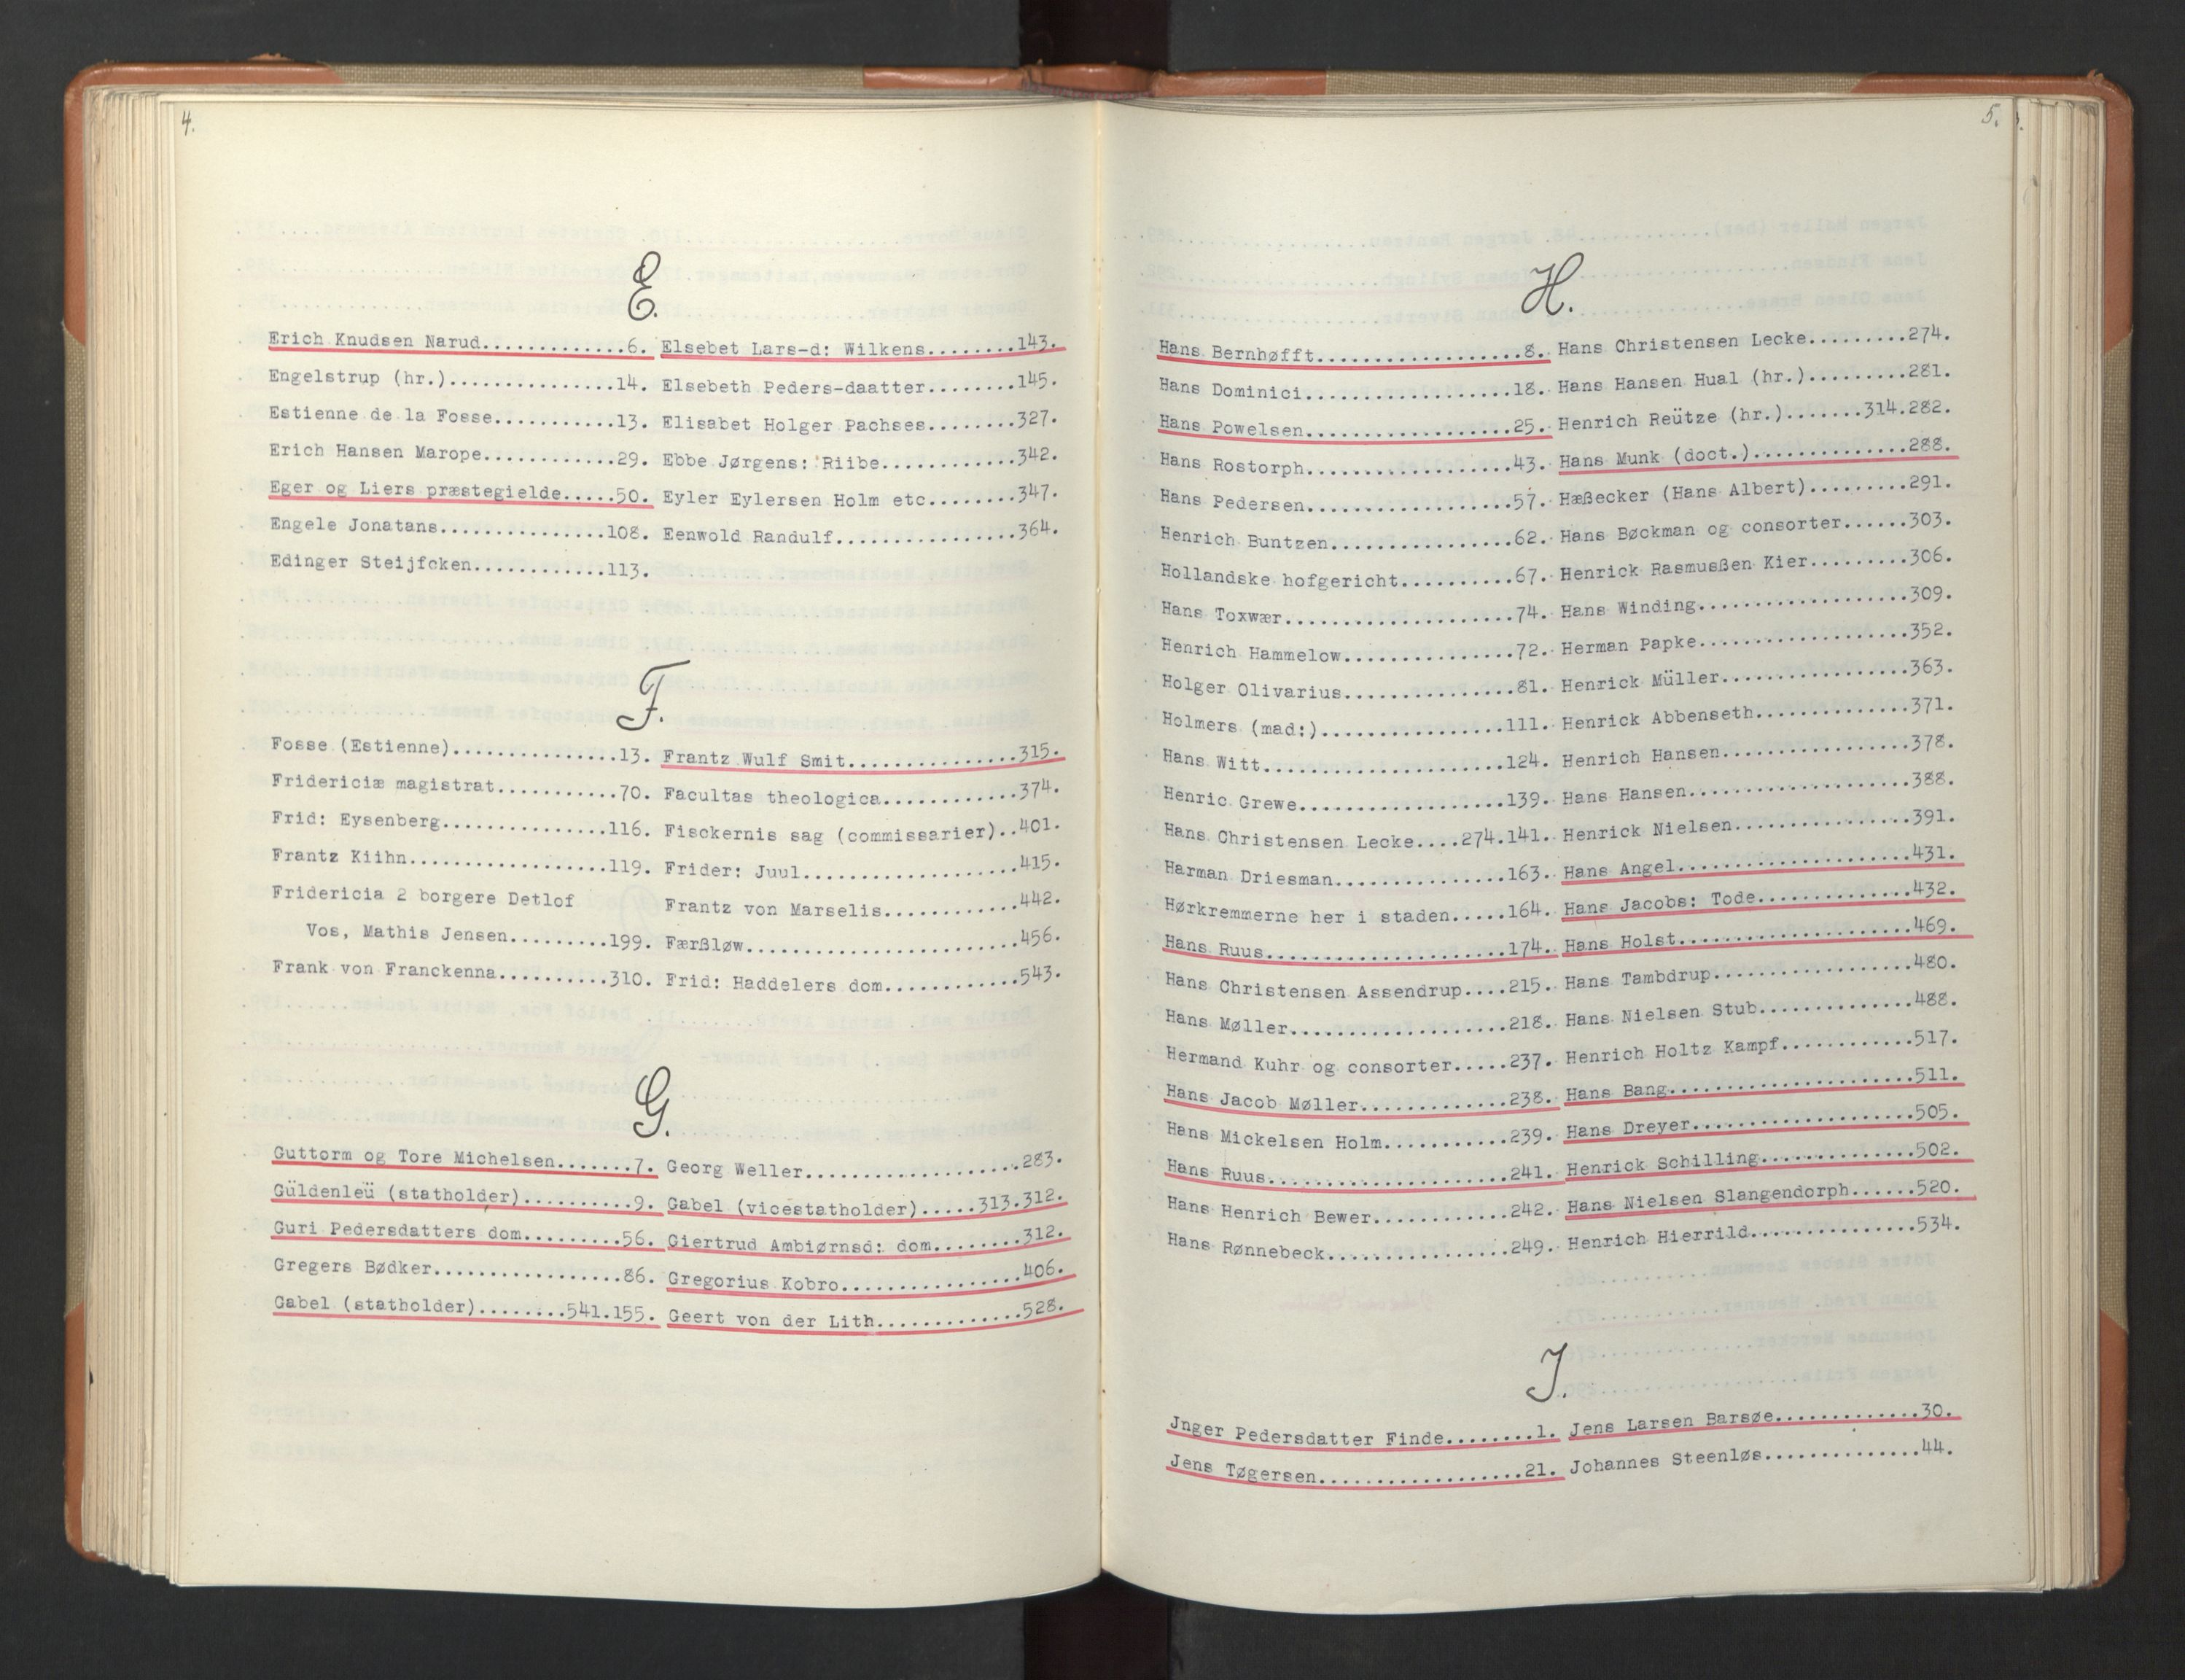 4.
E.
Erich Knudsen Narud.............6. Elsebet Lars-d: Wilkens........143.
Engelstrup (hr.)...............14. Elsebeth Peders-daatter........145.
Estienne de la Fosse...........13. Elisabet Holger Pachses........327.
Erich Hansen Marope............29. Ebbe Jørgens: Riibe............342.
Eger og Liers præstegielde.....50. Eyler Eylersen Holm etc........347.
Engele Jonatans...............108. Eenwold Randulf................364.
Edinger Steijfcken............113.
F.
Fosse (Estienne)...............13. Frantz Wulf Smit...............315.
Fridericiæ magistrat...........70. Facultas theologica............374.
Frid: Eysenberg...............116. Fisckernis sag (commissarier)..401.
Frantz Kiihn..................119. Frider: Juul...................415.
Fridericia 2 borgere Detlof Frantz von Marselis............442.
Vos, Mathis Jensen.........199. Færßløw........................456.
Frank von Franckenna..........310. Frid: Haddelers dom............543.
G.
Guttorm og Tore Michelsen.......7. Georg Weller...................283.
Güldenleü (statholder)..........9. Gabel (vicestatholder).....313.312.
Guri Pedersdatters dom.........56. Giertrud Ambiørnsd: dom........312.
Gregers Bødker.................86. Gregorius Kobro................406.
Gabel (statholder)........541.155. Geert von der Lith.............528.
5.
H.
Hans Bernhøfft..................8. Hans Christensen Lecke.........274.
Hans Dominici..................18. Hans Hansen Hual (hr.).........281.
Hans Powelsen..................25. Henrich Reütze (hr.).......314.282.
Hans Rostorph..................43. Hans Munk (doct.)..............288.
Hans Pedersen..................57. Hæßecker (Hans Albert).........291.
Henrich Buntzen................62. Hans Bøckman og consorter......303.
Hollandske hofgericht..........67. Henrick Rasmusßen Kier.........306.
Hans Toxwær....................74. Hans Winding...................309.
Henrich Hammelow...............72. Herman Papke...................352.
Holger Olivarius...............81. Henrick Müller.................363.
Holmers (mad:)................111. Henrick Abbenseth..............371.
Hans Witt.....................124. Henrich Hansen.................378.
Henric Grewe..................139. Hans Hansen....................388.
Hans Christensen Lecke....274.141. Henrick Nielsen................391.
Harman Driesman...............163. Hans Angel.....................431.
Hørkremmerne her i staden.....164. Hans Jacobs: Tode..............432.
Hans Ruus.....................174. Hans Holst.....................469.
Hans Christensen Assendrup....215. Hans Tambdrup..................480.
Hans Møller...................218. Hans Nielsen Stub..............488.
Hermand Kuhr og consorter.....237. Henrich Holtz Kampf............517.
Hans Jacob Møller.............238. Hans Bang......................511.
Hans Mickelsen Holm...........239. Hans Dreyer....................505.
Hans Ruus.....................241. Henrick Schilling..............502.
Hans Henrich Bewer............242. Hans Nielsen Slangendorph......520.
Hans Rønnebeck................249. Henrich Hierrild...............534.
J.
Jnger Pedersdatter Finde........1. Jens Larsen Barsøe.............30.
Jens Tøgersen..................21. Johannes Steenløs..............44.